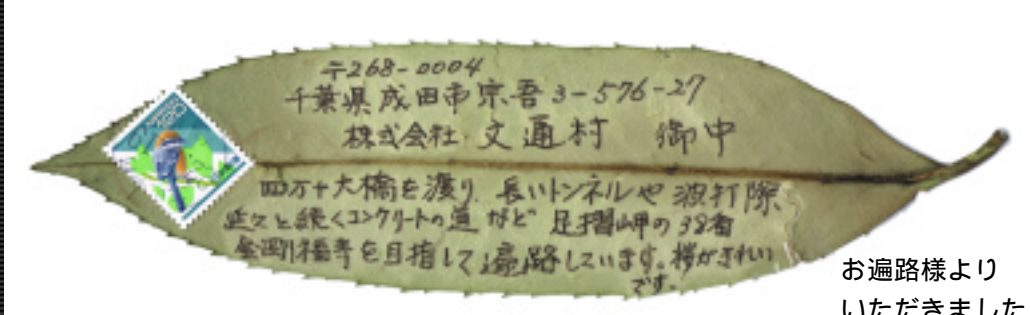 〒268-0004
千葉県成田市宗吾3-576-27
株式会社 文通村 御中
四万十大橋を渡り、長いトンネルや波打際、
延々と続くコンクリートの道など 足摺岬の38番
金剛福寺を目指して遍路しています。桜がきれい
です。
お遍路様より
いただきました